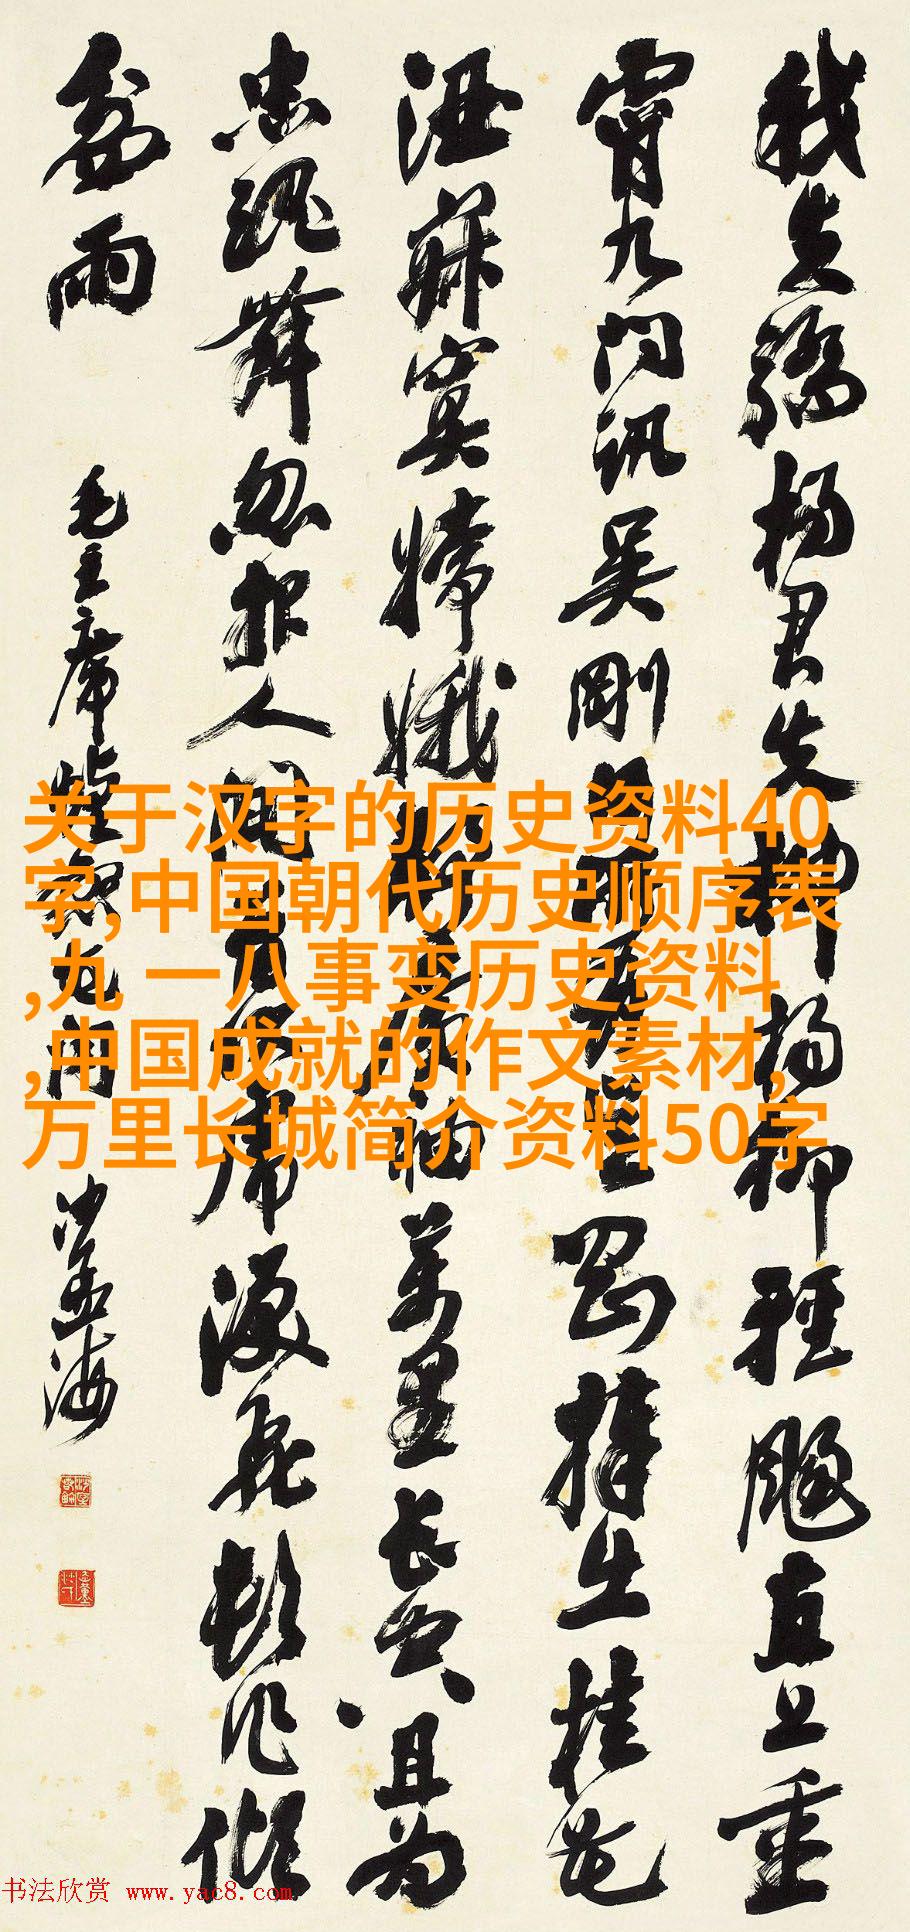 我失驕楊君失柳楊柳輕颺直上重
霄九問訊吳剛何所有吳剛捧出桂花
酒寂寞嫦娥舒廣袖萬里長空且為
忠魂舞忽報人間曾伏虎淚飛頓作傾
盆雨
毛主席蝶戀花詞 沙孟海
关于汉字的历史资料40
字,中国朝代历史顺序表
,九 一八事变历史资料
,中国成就的作文素材,
万里长城简介资料50字
书法欣赏 www.yac8.com